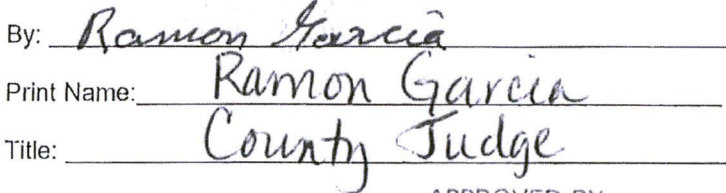 By: Ramon Garcia
Print Name: Ramon Garcia
Title: County Judge
APPROVED BY